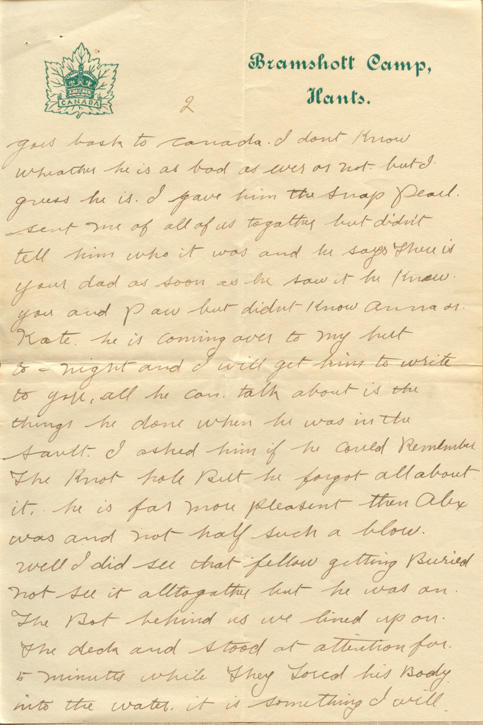 CANADA
Bramshott Camp,
Hants.
2
goes back to canada. I dont Know
wheather he is as bad as ever or not. but I
guess he is. I gave him the snap Pearl.
sent me of all of us togather but didn't
tell him who it was and he says There is
your dad as soon as he saw it he Knew.
you and Paw but didnt Know anna or.
Kate. he is coming over to my hut
to-night and I will get him to write
to you, all he can talk about is the
things he done when he was in the
sault. I asked him if he could Remember
The Knot hole But he forgot all about
it. he is far more pleasent then Alex
was and not half such a blow.
well I did see that fellow getting Buried
not see it alltogather but he was on.
The Bot behind us we lined up on.
the deck and stood at attention for.
5 minutts while They Lored his Body
into the water. it is something I will.